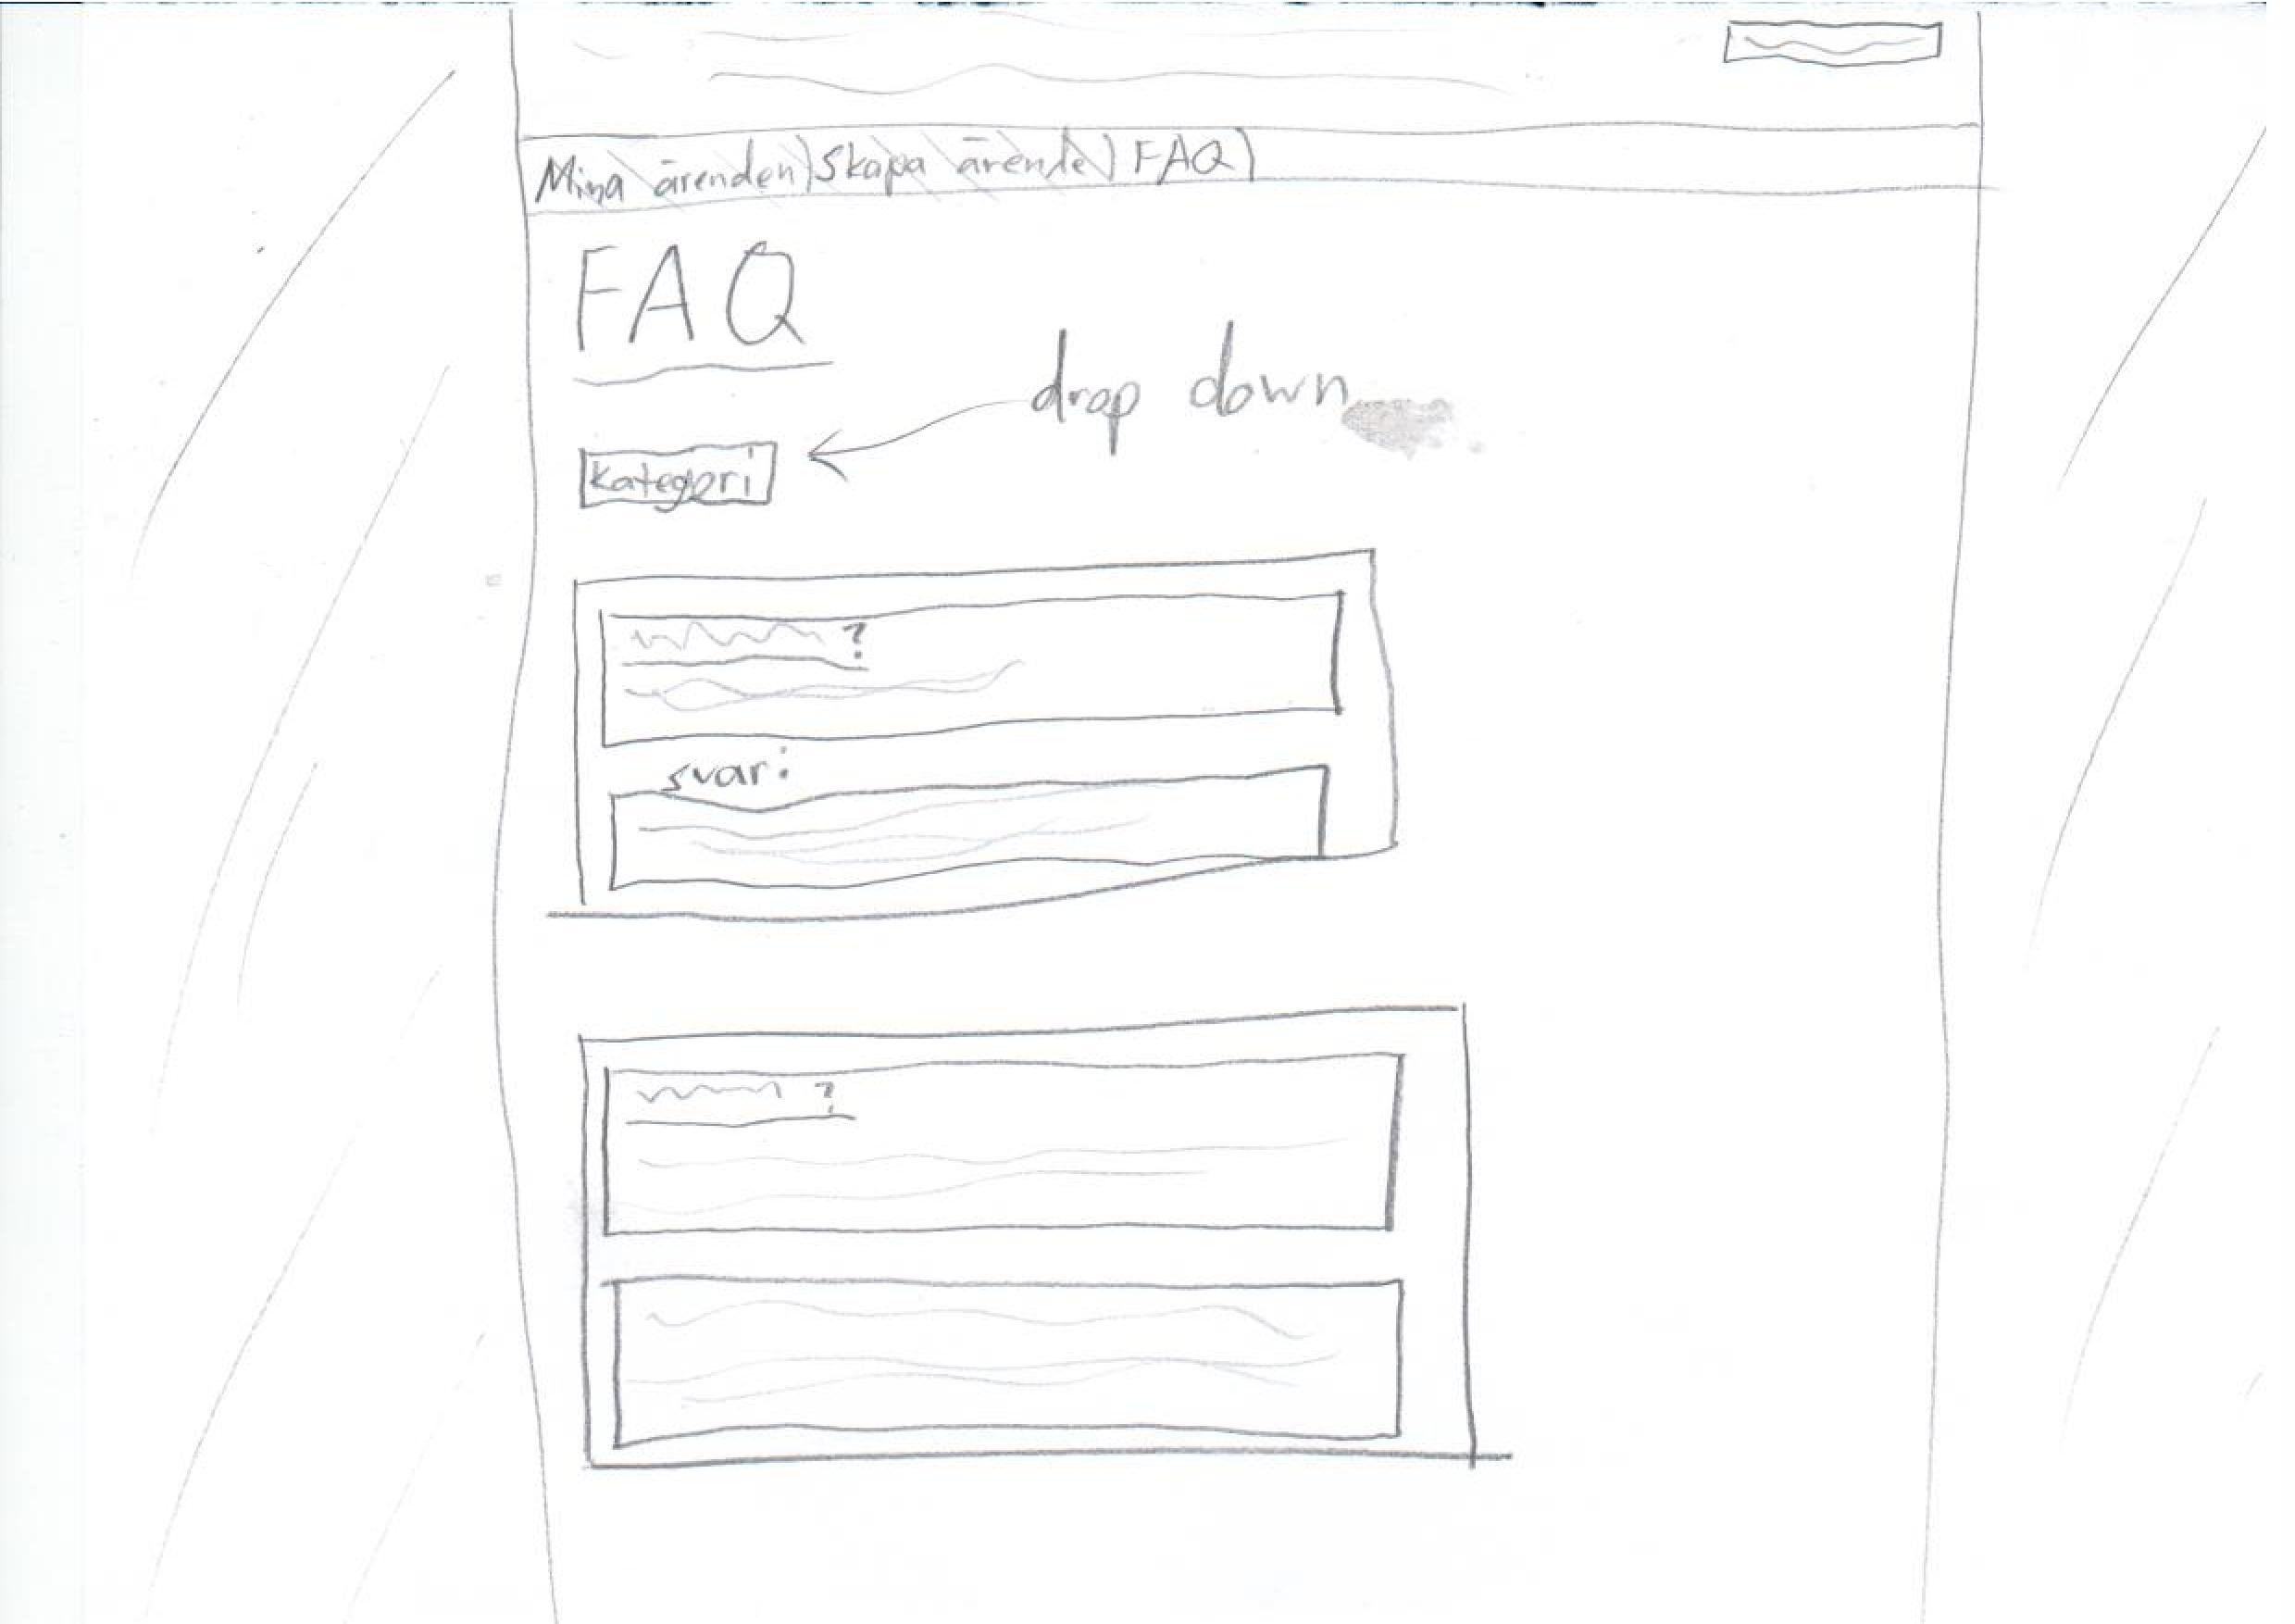 Mina ärenden Skapa ärende FAQ
FAQ
drop down
kategori
?
svar:
?